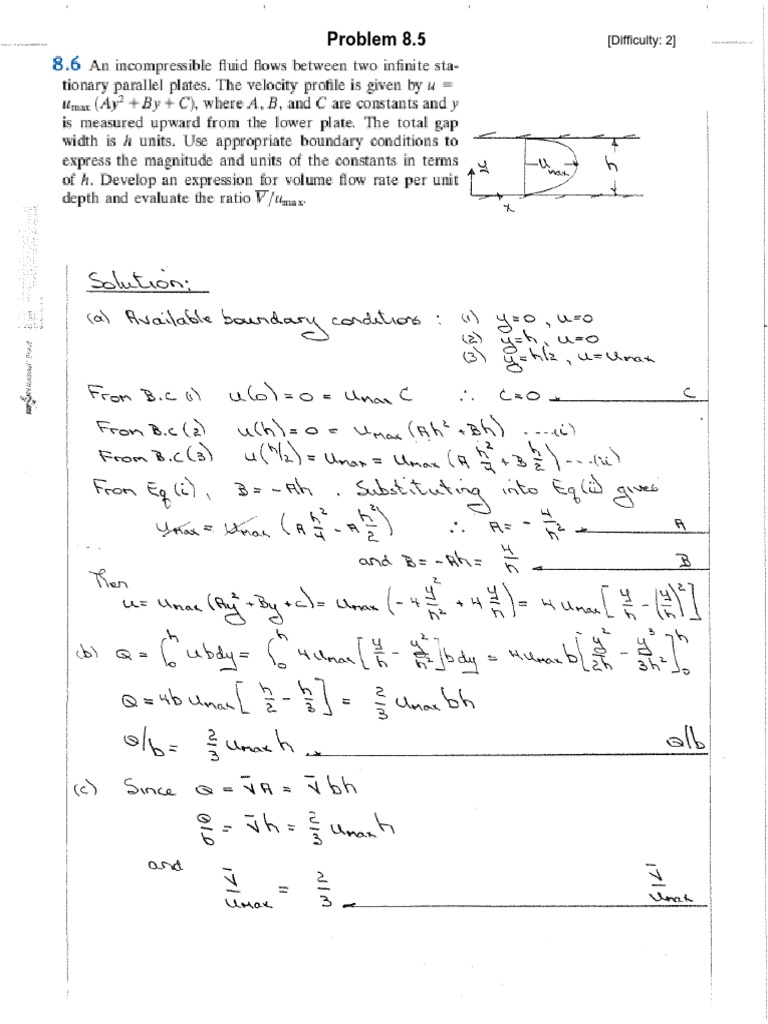 Problem 8.5
[Difficulty: 2]
8.6 An incompressible fluid flows between two infinite sta-
tionary parallel plates. The velocity profile is given by u =
u_max (Ay² + By + C), where A, B, and C are constants and y
is measured upward from the lower plate. The total gap
width is h units. Use appropriate boundary conditions to
express the magnitude and units of the constants in terms
of h. Develop an expression for volume flow rate per unit
depth and evaluate the ratio V̄/u_max.
y
x
u_max
h
Solution:
(a) Available boundary conditions : (1) y=0, u=0
(2) y=h, u=0
(3) y=h/2, u=u_max
From B.C (1) u(0) = 0 = u_max C ∴ C=0 C
From B.C (2) u(h) = 0 = u_max (Ah² + Bh) ....(i)
From B.C (3) u(h/2) = u_max = u_max (A h²/4 + B h/2) ...(ii)
From Eq (i), B = -Ah. Substituting into Eq (ii) gives
u_max = u_max (A h²/4 - A h²/2) ∴ A = - 4/h² A
and B = -Ah = 4/h B
Then
u = u_max (Ay² + By + C) = u_max (-4 y²/h² + 4 y/h) = 4 u_max [y/h - (y/h)²]
(b) Q = ∫₀ʰ u b dy = ∫₀ʰ 4 u_max [y/h - y²/h²] b dy = 4 u_max b [y²/2h - y³/3h²]₀ʰ
Q = 4b u_max [h/2 - h/3] = 2/3 u_max bh
Q/b = 2/3 u_max h Q/b
(c) Since Q = V̄A = V̄bh
Q/b = V̄h = 2/3 u_max h
and
V̄/u_max = 2/3 V̄/u_max